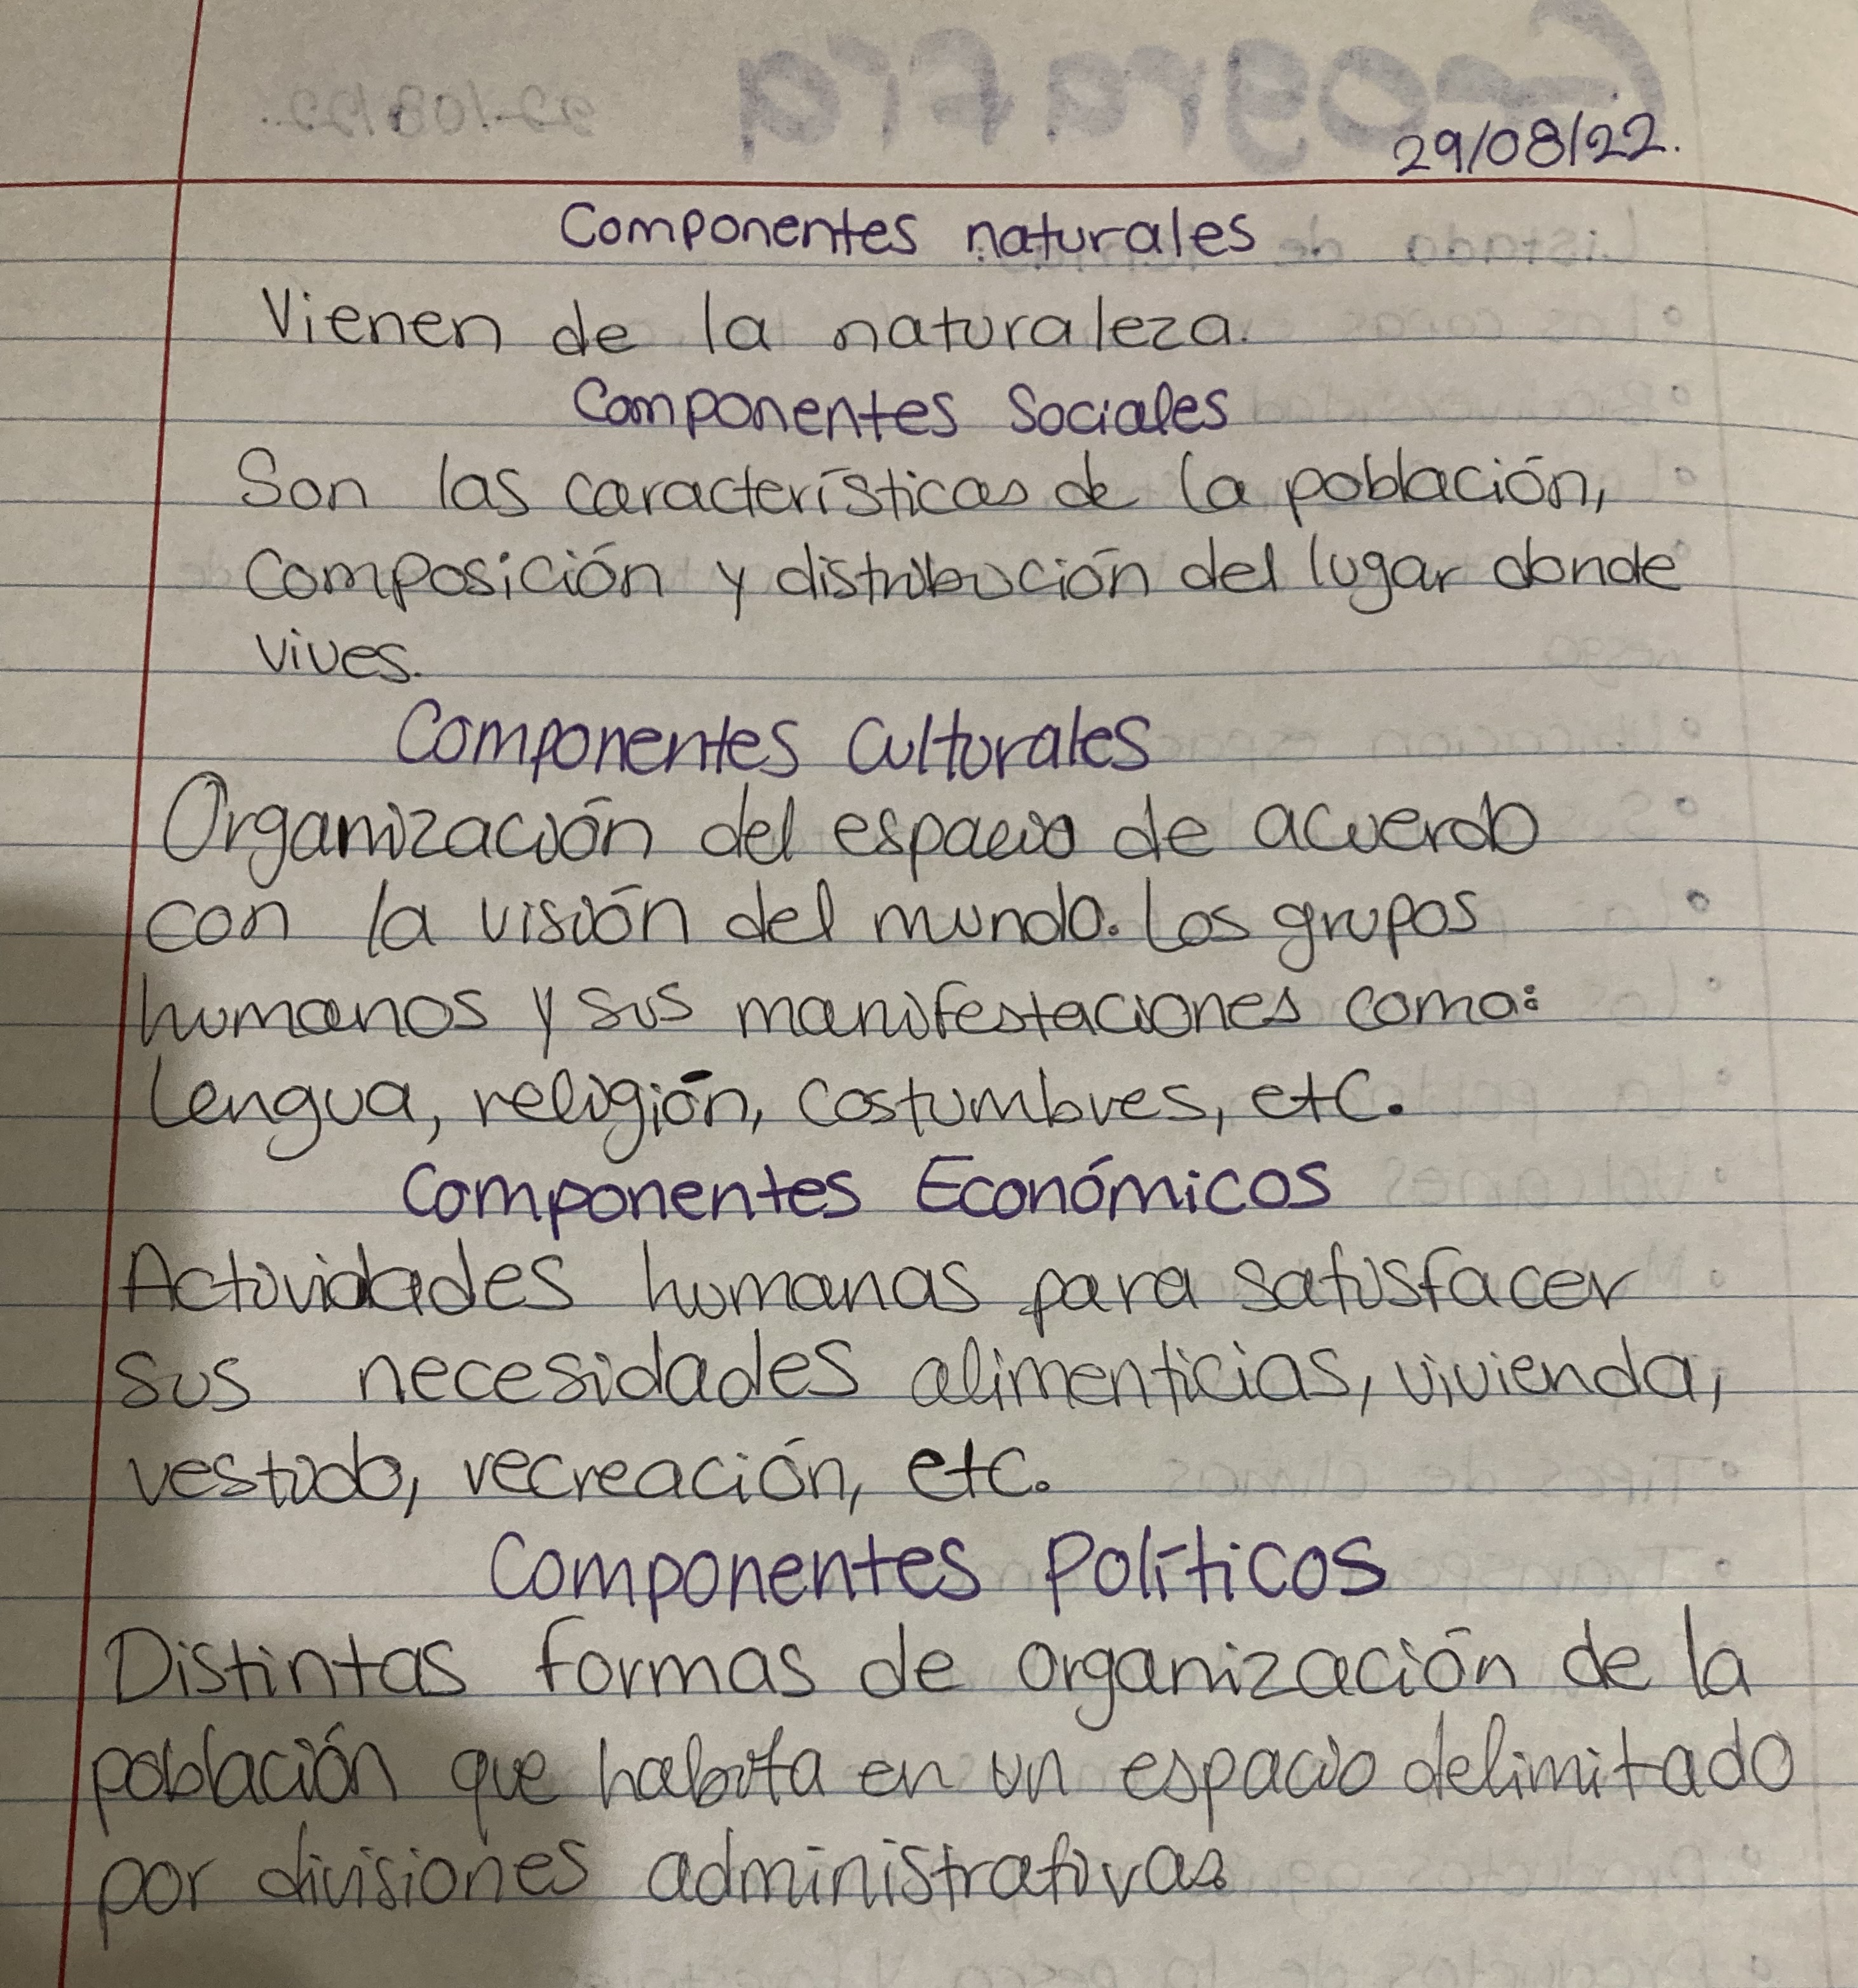 29/08/22.
Componentes naturales
Vienen de la naturaleza.
Componentes Sociales
Son las características de la población,
composición y distribución del lugar donde
vives.
Componentes Culturales
Organización del espacio de acuerdo
con la visión del mundo. Los grupos
humanos y sus manifestaciones como:
Lengua, religión, costumbres, etc.
Componentes Económicos
Actividades humanas para satisfacer
sus necesidades alimenticias, vivienda,
vestido, recreación, etc.
Componentes Políticos
Distintas formas de organización de la
población que habita en un espacio delimitado
por divisiones administrativas.